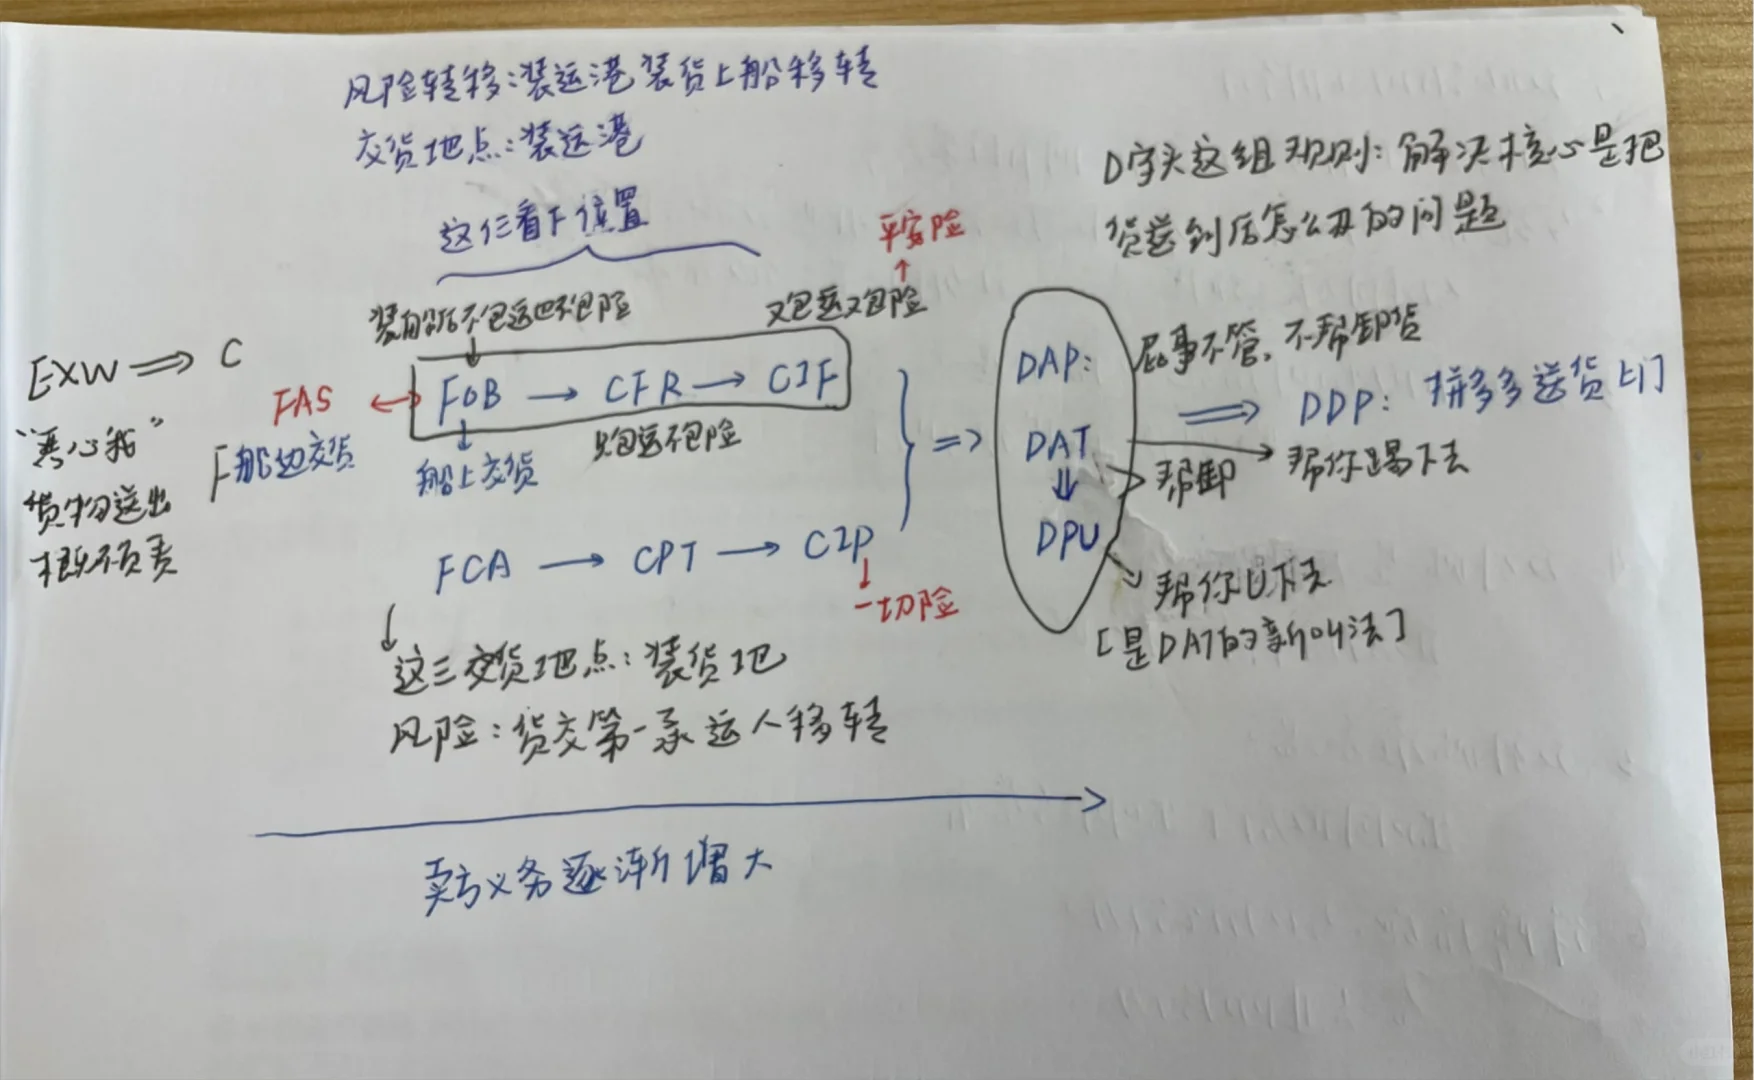 风险转移:装运港装货上船移转
交货地点:装运港
D字头这组规则:解决核心是把
货送到后怎么办的问题
这仨看F位置
平安险
装船后不包运也不包险
又包运又包险
EXW ⇒ C
FAS ← FOB → CFR → CIF
DAP: 屁事不管,不帮卸货
⇒ DDP: 拼多多送货上门
"恶心我"
货物送出
概不负责
F船边交货
船上交货
只包运不包险
⇒
DAT
帮卸
帮你踢下去
DPU
帮你卸下去
[是DAT的新叫法]
FCA → CPT → CIP
一切险
这三交货地点:装货地
风险:货交第一承运人移转
卖方义务逐渐增大